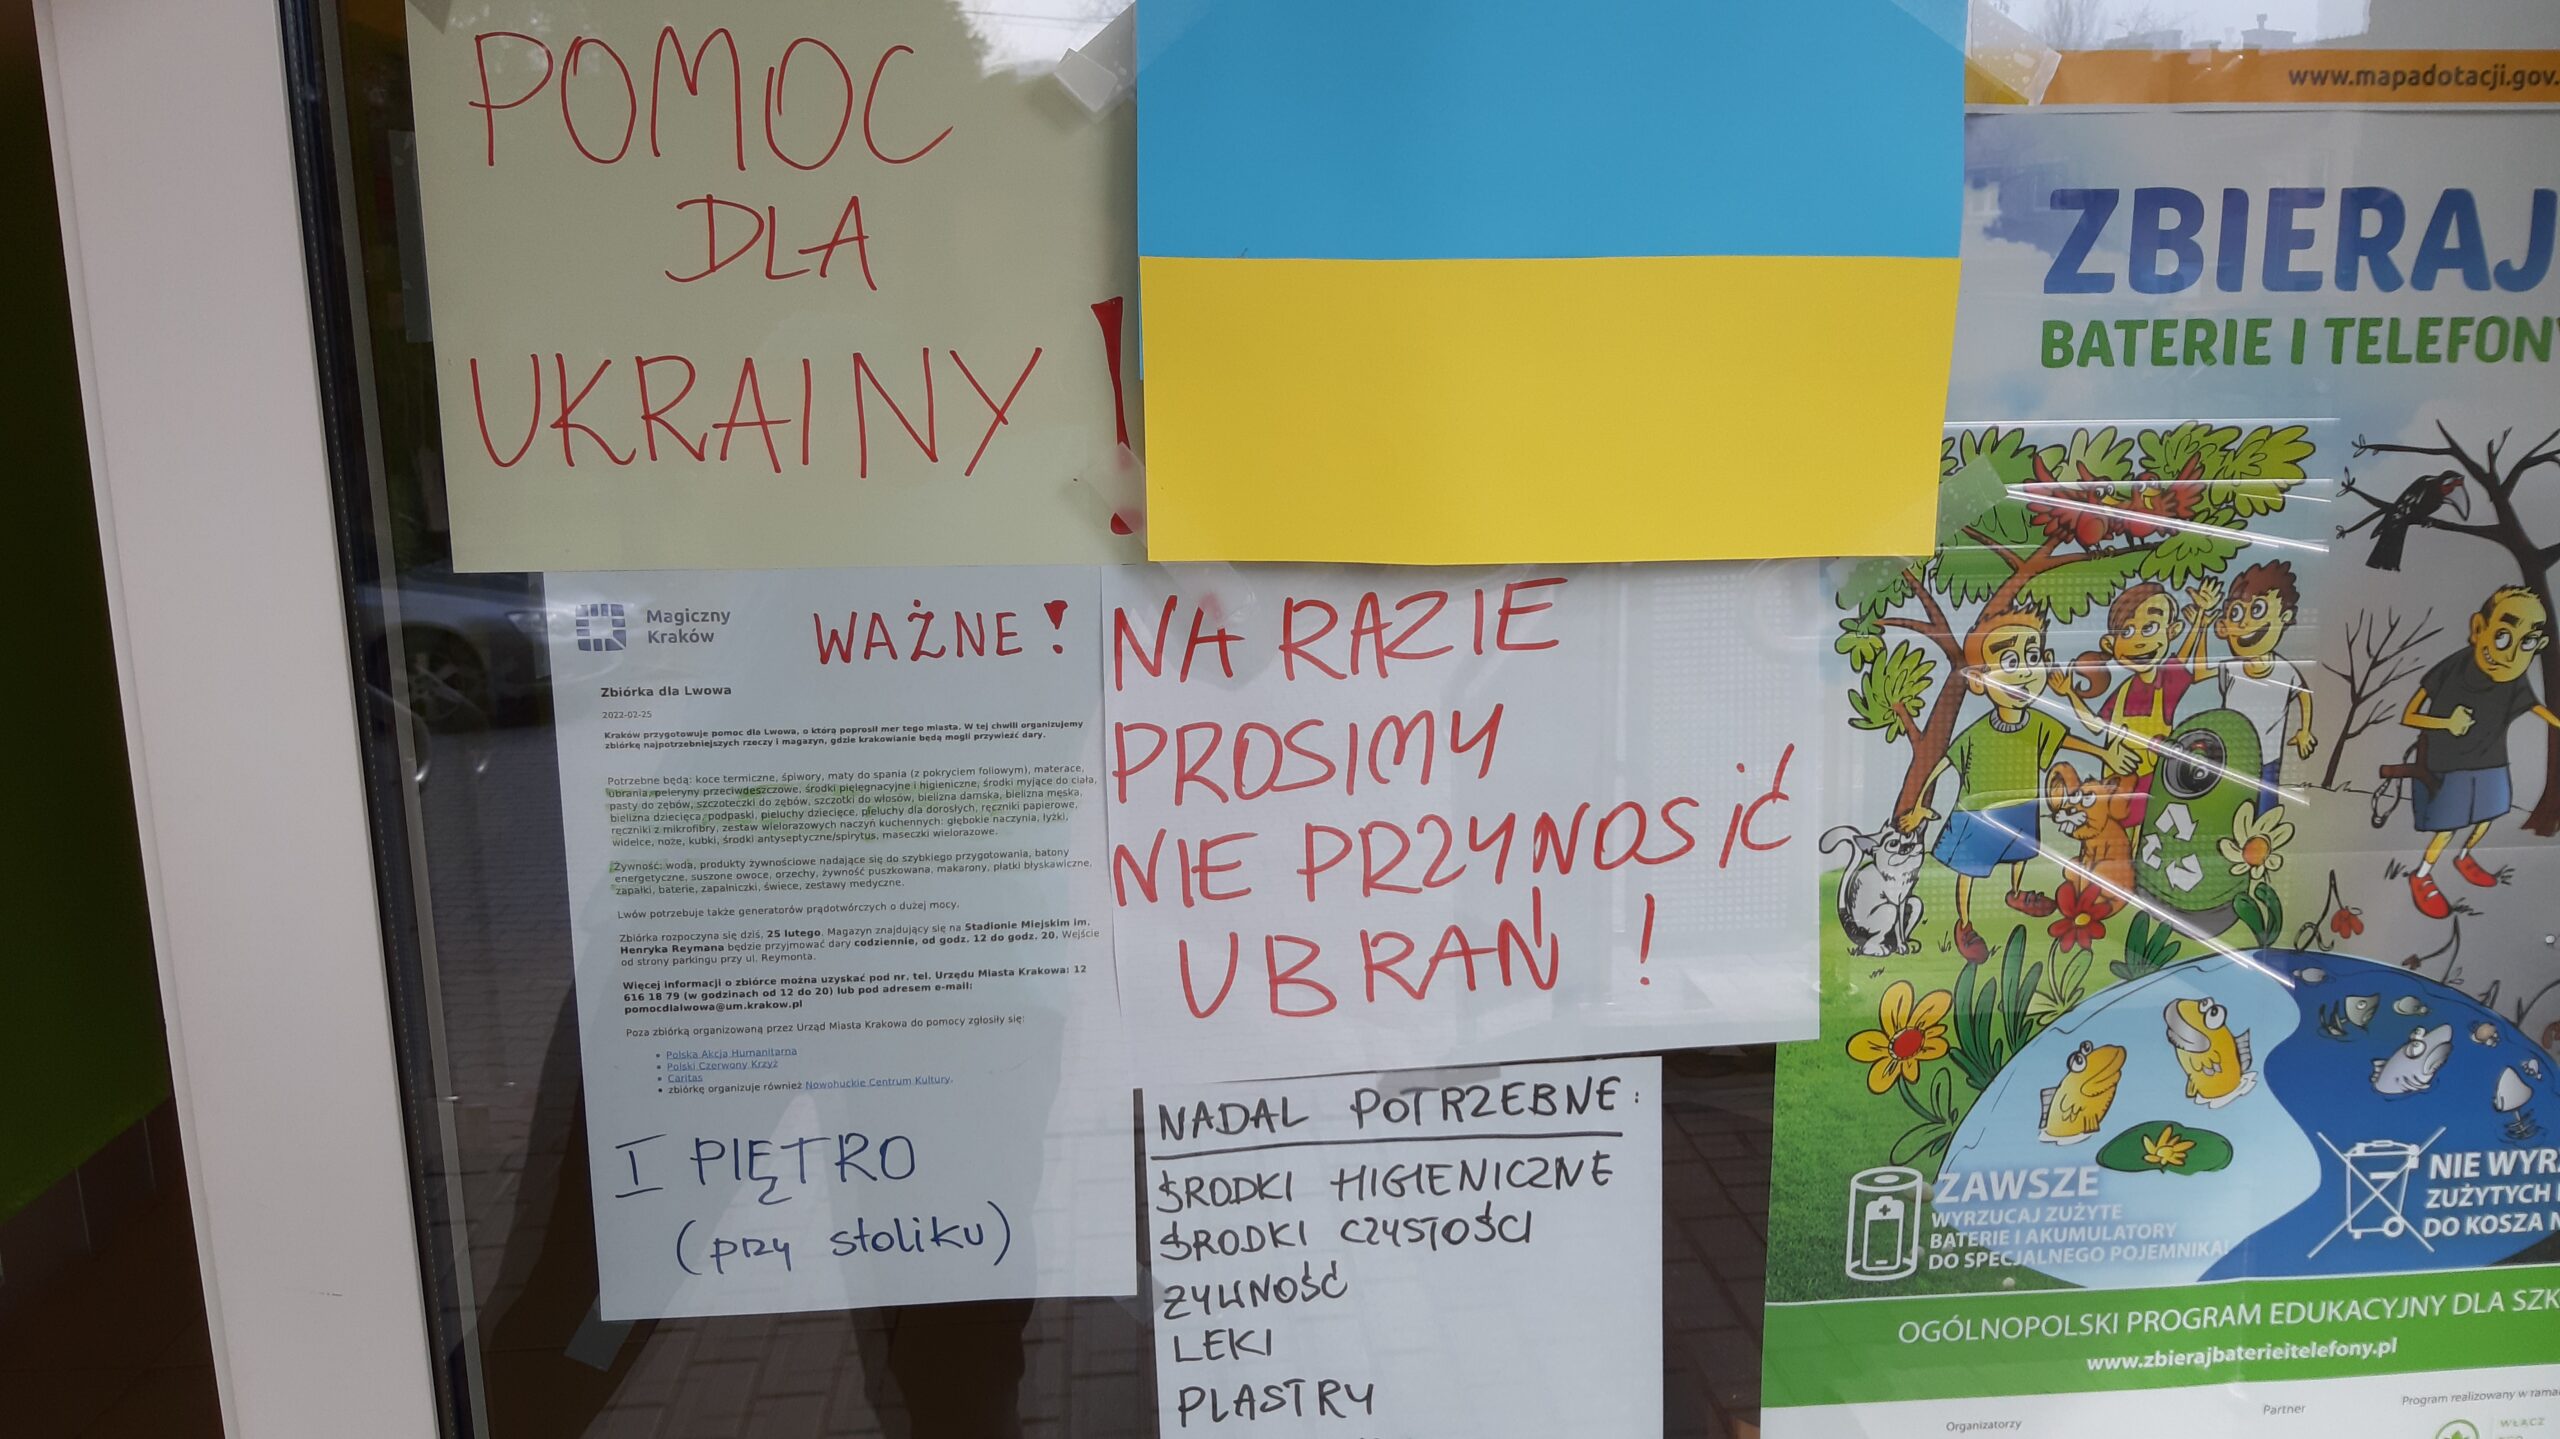 POMOC
DLA
UKRAINY!
Magiczny
Kraków
WAŻNE!
Zbiórka dla Lwowa
2022-02-25
Kraków przygotowuje pomoc dla Lwowa, o którą poprosił mer tego miasta. W tej chwili organizujemy
zbiórkę najpotrzebniejszych rzeczy i magazyn, gdzie krakowianie będą mogli przywieźć dary.
Potrzebne będą: koce termiczne, śpiwory, maty do spania (z pokryciem foliowym), materace,
ubrania, peleryny przeciwdeszczowe, środki pielęgnacyjne i higieniczne, środki myjące do ciała,
pasty do zębów, szczoteczki do zębów, szczotki do włosów, bielizna damska, bielizna męska,
bielizna dziecięca, podpaski, pieluchy dziecięce, pieluchy dla dorosłych, ręczniki papierowe,
ręczniki z mikrofibry, zestaw wielorazowych naczyń kuchennych: głębokie naczynia, łyżki,
widelce, noże, kubki, środki antyseptyczne/spirytus, maseczki wielorazowe.
Żywność: woda, produkty żywnościowe nadające się do szybkiego przygotowania, batony
energetyczne, suszone owoce, orzechy, żywność puszkowana, makarony, płatki błyskawiczne,
zapałki, baterie, zapalniczki, świece, zestawy medyczne.
Lwów potrzebuje także generatorów prądotwórczych o dużej mocy.
Zbiórka rozpoczyna się dziś, 25 lutego. Magazyn znajdujący się na Stadionie Miejskim im.
Henryka Reymana będzie przyjmować dary codziennie, od godz. 12 do godz. 20. Wejście
od strony parkingu przy ul. Reymonta.
Więcej informacji o zbiórce można uzyskać pod nr. tel. Urzędu Miasta Krakowa: 12
616 18 79 (w godzinach od 12 do 20) lub pod adresem e-mail:
pomocdlalwowa@um.krakow.pl
Poza zbiórką organizowaną przez Urząd Miasta Krakowa do pomocy zgłosiły się:
• Polska Akcja Humanitarna
• Polski Czerwony Krzyż
• Caritas
• zbiórkę organizuje również Nowohuckie Centrum Kultury.
I PIĘTRO
(przy stoliku)
NA RAZIE
PROSIMY
NIE PRZYNOSIĆ
UBRAŃ!
NADAL POTRZEBNE:
ŚRODKI HIGIENICZNE
ŚRODKI CZYSTOŚCI
ŻYWNOŚĆ
LEKI
PLASTRY
www.mapadotacji.gov.
ZBIERAJ
BATERIE I TELEFONY
ZAWSZE
WYRZUCAJ ZUŻYTE
BATERIE I AKUMULATORY
DO SPECJALNEGO POJEMNIKA!
NIE WYR
ZUŻYTYCH
DO KOSZA N
OGÓLNOPOLSKI PROGRAM EDUKACYJNY DLA SZK
www.zbierajbaterieitelefony.pl
Program realizowany w rama
Organizatorzy
Partner
WŁĄCZ